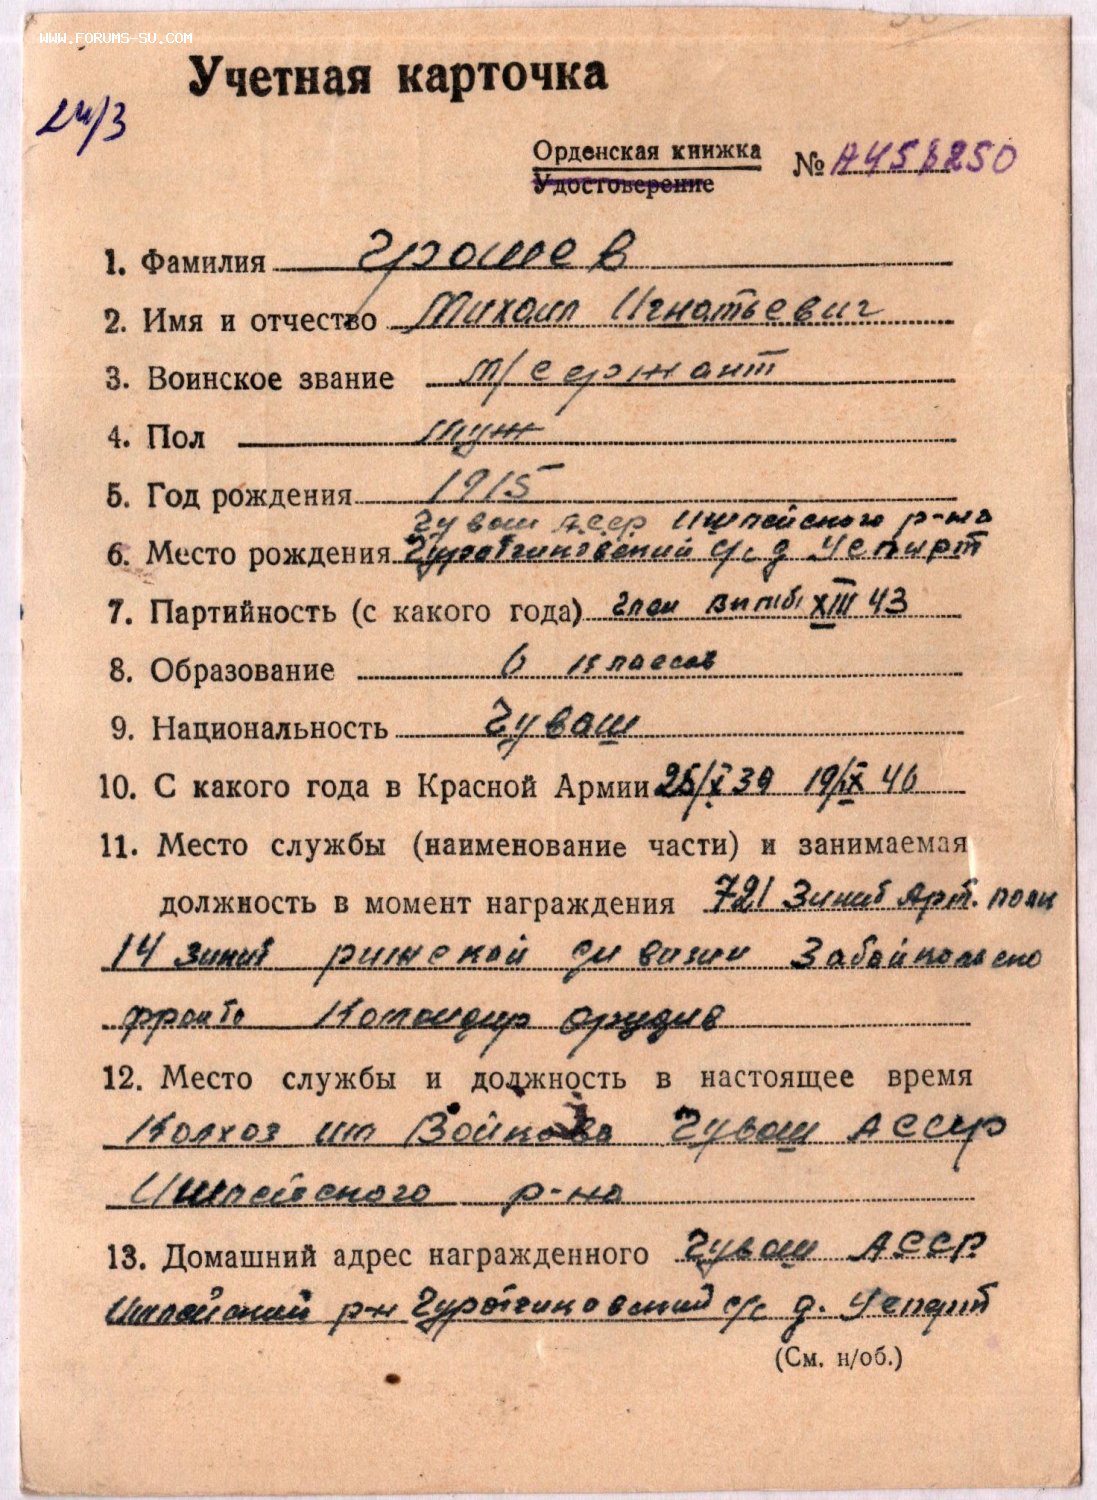 WWW.FORUMS-SU.COM
Учетная карточка
24/3
Орденская книжка
Удостоверение
№ А
1. Фамилия
2. Имя и отчество Михаил Игнатьевич
3. Воинское звание м/сержант
4. Пол муж
5. Год рождения 1915
Чуваш АССР Ишлейского р-на
6. Место рождения с/с д
7. Партийность (с какого года) член ВКП(б) XII 43
8. Образование 6 классов
9. Национальность Чуваш
10. С какого года в Красной Армии 25/X 39 19/IX 46
11. Место службы (наименование части) и занимаемая
должность в момент награждения 721 Зинит Арт. полк
14 зинит рижской дивизии Забайкальско
фронта Командир орудия
12. Место службы и должность в настоящее время
Колхоз им Войкова Чуваш АССР
Ишлейского р-на
13. Домашний адрес награжденного Чуваш АССР
Ишлейский р-н с/с д.
(См. н/об.)